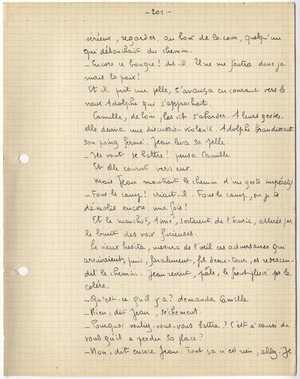 - 201 -
sérieux, regarder, au bout de la cour, quelqu'un
qui débouchait du chemin.
- Encore ce bougre ! dit-il. Il ne me foutra donc ja-
mais la paix !
Et il prit une pelle, s'avança en courant vers le
vieux Adolphe qui s'approchait.
Camille, de loin, les vit s'aborder. A leurs gestes,
elle devina une discussion violente. Adolphe brandissait
son poing fermé. Jean leva sa pelle.
- Ils vont se battre ! pensa Camille.
Et elle courut vers eux.
Mais Jean montrait le chemin d'un geste impératif.
- Fous le camp ! criait-il. Fous le camp, ou je te
démolis encore une fois !
Et le manchot, Aimé, sortaient de l'écurie, attirés par
le bruit des voix furieuses.
Le vieux hésita, mesura de l'oeil ces adversaires qui
arrivaient, puis, finalement, fit demi-tour, et redescen-
dit le chemin. Jean revint, pâle, le front plissé par la
colère.
- Qu'est-ce qu'il y a ? demanda Camille.
- Rien, dit Jean, sèchement.
- Pourquoi vouliez-vous vous battre ? C'est à cause de
vous qu'il a perdu sa place ?
- Non, dit encore Jean. Tout ça n'est rien, allez. Je